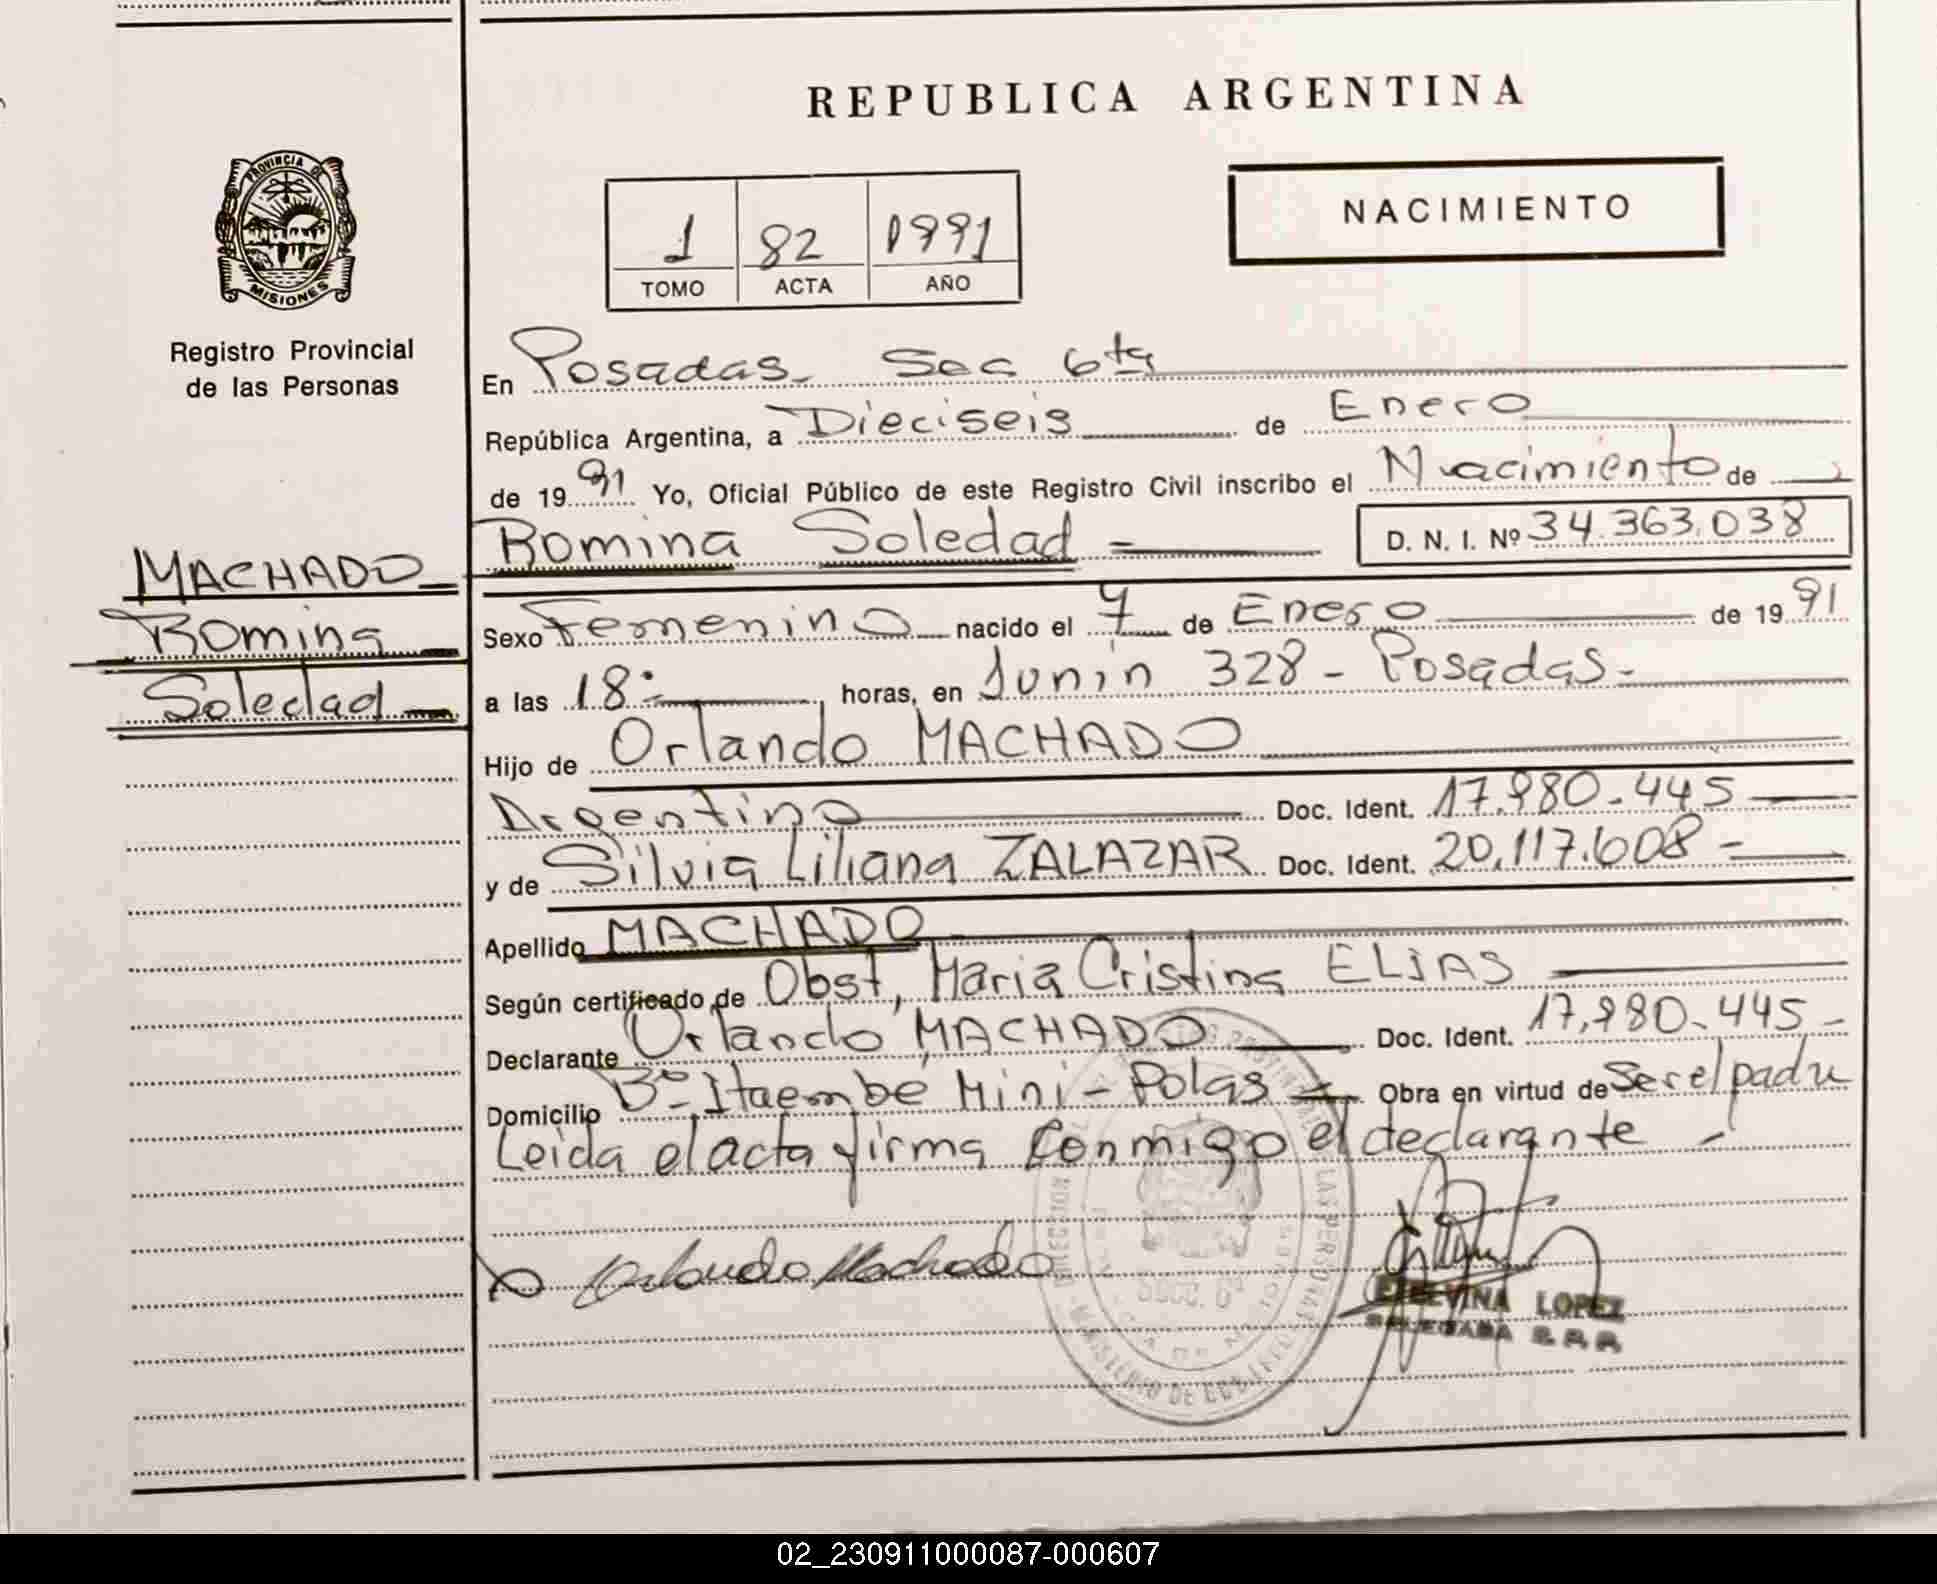 REPUBLICA ARGENTINA
PROVINCIA DE
MISIONES
Registro Provincial
de las Personas
1 82 1991
TOMO ACTA AÑO
NACIMIENTO
MACHADO
Romina
Soledad
En Posadas. Sec 6ta
República Argentina, a Dieciseis de Enero
de 1991 Yo, Oficial Público de este Registro Civil inscribo el Nacimiento de
Romina Soledad D. N. I. Nº 34.363.038
Sexo Femenino nacido el 7 de Enero de 1991
a las 18:- horas, en Junin 328 - Posadas -
Hijo de Orlando MACHADO
Argentino Doc. Ident. 17.980.445
y de Silvia Liliana ZALAZAR Doc. Ident. 20.117.608 -
Apellido MACHADO
Según certificado de Obst, Maria Cristina ELIAS
Declarante Orlando MACHADO Doc. Ident. 17,980-445-
Domicilio Bº Itaembe Mini - Polas Obra en virtud de Ser el padre
Leida el acta firma conmigo el declarante -
Orlando Machado
LOPEZ
02_230911000087-000607